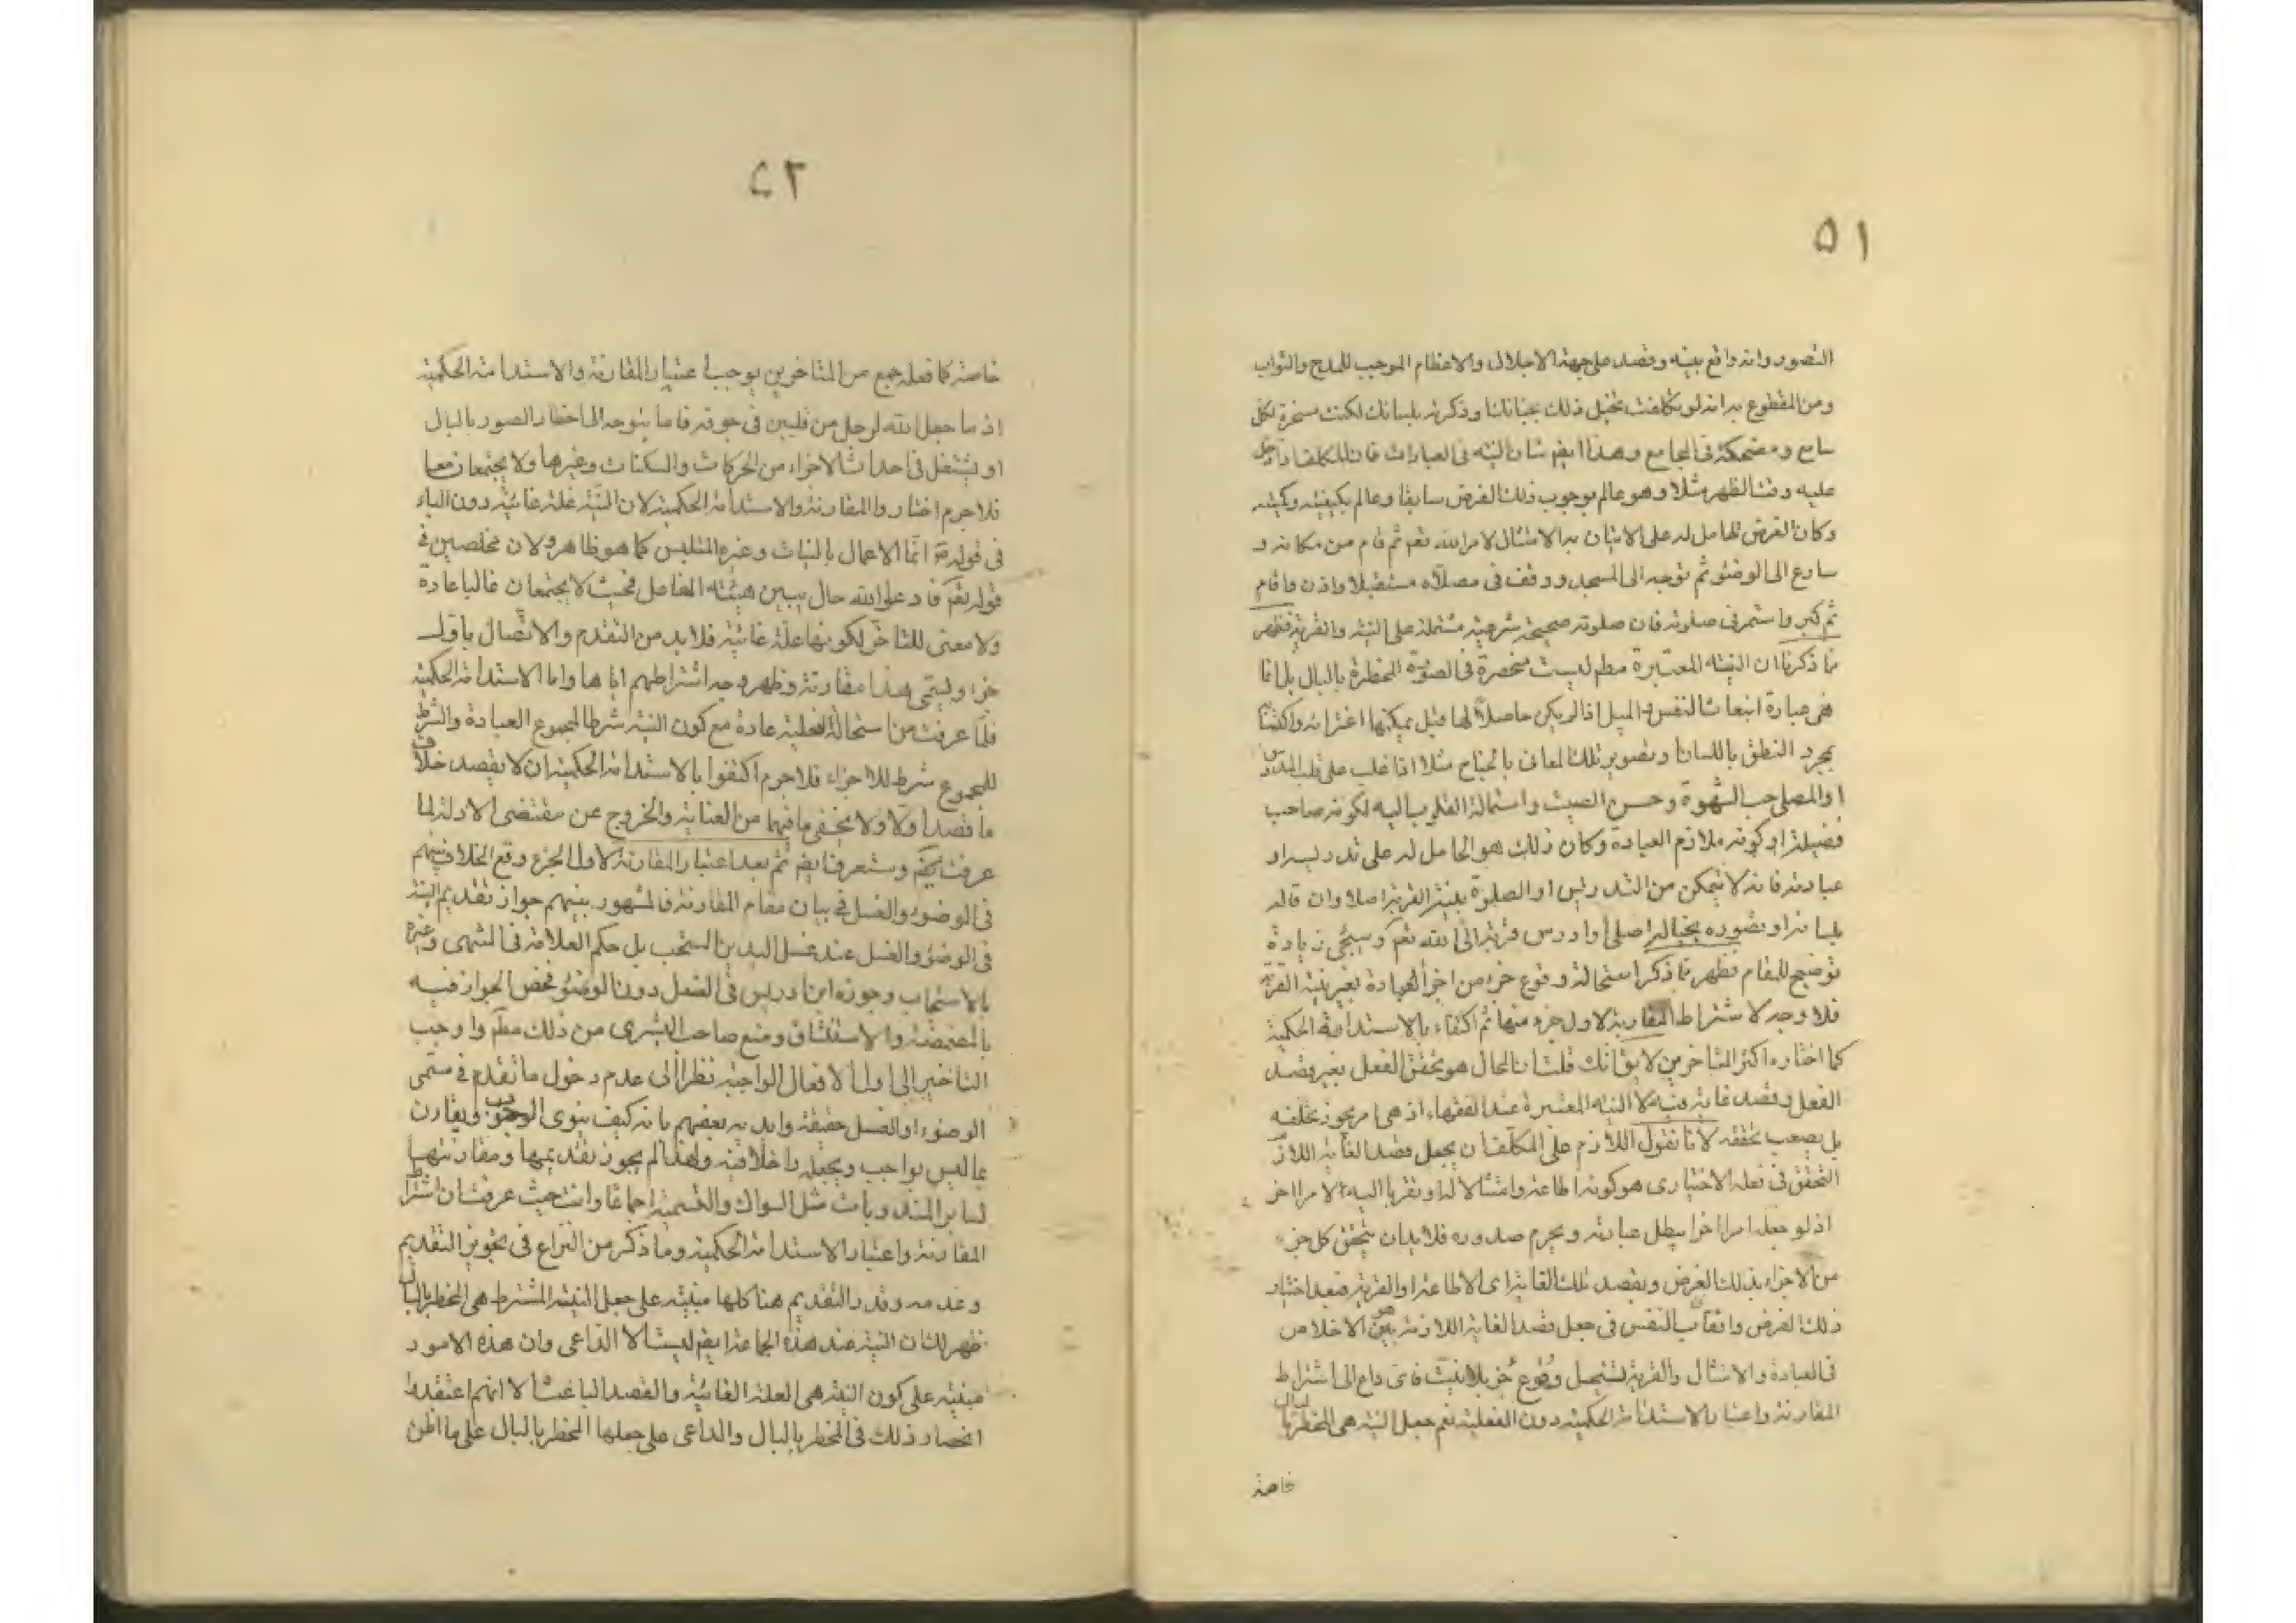 ٥١
التصور وانه واقع ببيته وقصد على جهة الاجلال والاعظام الموجب للمدح والثواب
ومن المقطوع به انه لو تكلفت تخيل ذلك بجنانك وذكرته بلسانك لكنت سخرة لكل
سامع ومضحكة فى المجامع وهذا ايضم شان النيته فى العبارات فان المكلف اذا دخل
عليه وقت الظهر مثلا وهو عالم بوجوب ذلك الفرض سابقا وعالم بكيفيته وكميته
وكان الغرض الحامل له على الاتيان به الامتثال لامر الله تعم ثم قام من مكانه و
سارع الى الوضوء ثم توجه الى المسجد ووقف فى مصلاه مستقبلا واذن واقام
ثم كبر واستمر فى صلوته فان صلوته صحيحة شرعية مشتملة على النية والقربة فظهر
مما ذكرنا ان النيته المعتبرة مطم ليست منحصرة فى الصورة المخطرة بالبال بل انما
هى عبارة انبعاث النفس والميل اذا لم يكن حاصلا لها قبل يمكنها اغترافه واكتسابه
بمجرد النطق باللسان وتصوير تلك المعانى بالجناح مثلا اذا غلب على قلب المدرس
او المصلى حب الشهوة وحسن الصيت واستمالة القلوب اليه لكونه صاحب
فضيلة او كونه ملازم العبادة وكان ذلك هو الحامل له على تدريسه او
عبادته فانه لا يتمكن من التدريس او الصلوة بنية القربة اصلا وان قال
بلسانه او تصوره بخياله اصلى او ادرس قربة الى الله تعم وسيجئ زيادة
توضيح للمقام فظهر مما ذكر استحالة وقوع جزء من اجزاء العبادة بغير نية القربة
فلا وجه لاشتراط المقارنة لاول جزء منها ثم اكتفاء بالاستدامة الحكمية
كما اختاره اكثر المتاخرين لا يق انك قلت ان المحال هو تحقق الفعل بغير قصد
الفعل وقصد غاية فيه لا النيه المعتبرة عند الفقهاء اذ هى امر يجوز تخلفه
بل يصعب تحققه لانا نقول اللازم على المكلف ان يجعل قصد الغاية اللازم
التحقق فى فعله الاختيارى هو كونه اطاعة وامتثالا له او تقربا اليه لا امرا اخر
اذ لو جعله امرا اخر يبطل عبادته ويحرم صدوره فلا بد ان يتحقق كل جزء
من الاجزاء بذلك الغرض وبقصد تلك الغاية اى الاطاعة او القربة فبعد اختيار
ذلك الغرض واتعاب النفس فى جعل قصد الغاية اللازمة هو الاخلاص
فى العبادة والامتثال والقربة يستحيل وقوع جزء بلا نيت فاى داع الى اشتراط
المقارنة واعتبار الاستدامة الحكمية دون الفعلية نعم جعل النيه هى المخطرة بالبال
خاصة
٥٢
خاصة كما فعله جمع من المتاخرين يوجب اعتبار المقارنة والاستدامة الحكمية
اذ ما جعل الله لرجل من قلبين فى جوفه فاما يتوجه الى اخطار الصور بالبال
او يشتغل فى احداث الاجزاء من الحركات والسكنات وغيرها ولا يجتمعان معا
فلا جرم اختاروا المقارنة والاستدامة الحكمية لان النية علة غائية دون الباء
فى قوله انما الاعمال بالنيات وغيره المتلبس كما هو ظاهر ولان مخلصين فى
قوله تعم فادعوا الله حال يبين هيئته الفاعل فحيث لا يجتمعان غالبا عادة
ولا معنى للتاخر لكونها علة غائية فلا بد من التقدم والاتصال باول
جزء ويسمى هذا مقارنة وظهر وجه اشتراطهم اياها واما الاستدامة الحكمية
فلما عرفت من استحالة الفعلية عادة مع كون النية شرطا لمجموع العبادة والشرط
للمجموع شرط للاجزاء فلا جرم اكتفوا بالاستدامة الحكمية ان لا يقصد خلاف
ما قصد اولا ولا يخفى ما فيهما من العناية والخروج عن مقتضى الادلة لما
عرفت وستعرف ايضم ثم بعد اعتبار المقارنة لاول الجزء وقع الخلاف بينهم
فى الوضوء والغسل فى بيان مقام المقارنة فالمشهور بينهم جواز تقديم النية
فى الوضوء والغسل عند غسل اليدين المستحب بل حكم العلامة فى المنتهى وغيره
بالاستحباب وجوزه ابن ادريس فى الغسل دون الوضوء فخص الجواز فيه
بالمضمضة والاستنشاق ومنع صاحب البشرى من ذلك مطم واوجب
التاخير الى اول الافعال الواجبة نظرا الى عدم دخول ما تقدم فى مسمى
الوضوء او الغسل حقيقة وايد به بعضهم بانه كيف ينوى الوجوب ويقارن
بما ليس بواجب ويجعله داخلا فيه ولهذا لم يجوز تقديمها ومقارنتها
لساير المندوبات مثل السواك والتسمية اجماعا وانت حيث عرفت ان اشتراط
المقارنة واعتبار الاستدامة الحكمية وما ذكر من النزاع فى تجويز التقديم
وعدمه وقدر التقديم هنا كلها مبنية على جعل النية المشترط هى المخطر بالبال
ظهر لك ان النية عند هذه الجماعة ايضم ليست الا الداعى وان هذه الامور
مبنيه على كون النية هى العلة الغائية والقصد الباعث الا انهم اعتقدوا
انحصار ذلك فى المخطر بالبال والداعى على جعلها المخطر بالبال على ما اظن